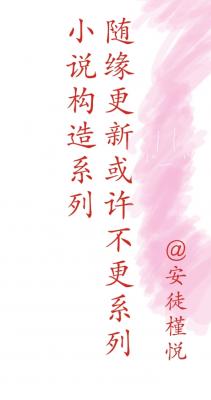 随缘更新或许不更系列
小说构造系列
@安徒槿悦